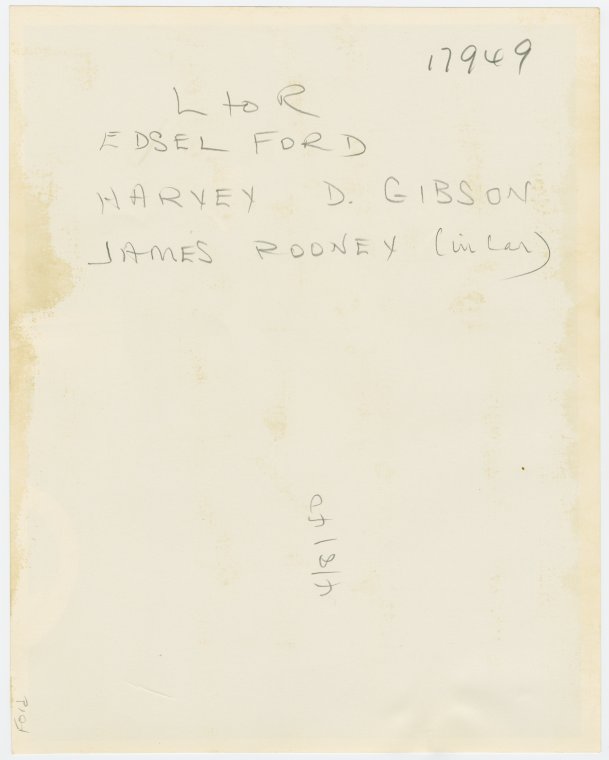 17949
L to R
EDSEL FORD
HARVEY D. GIBSON
JAMES ROONEY (in car)
Ford